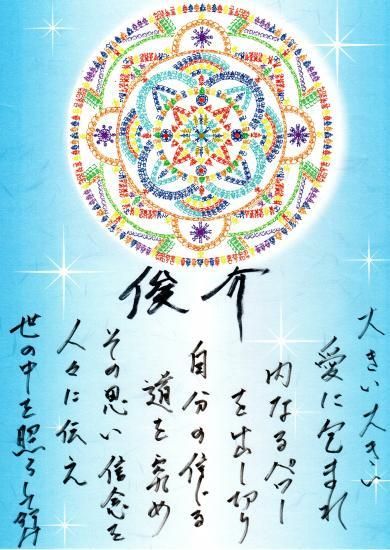 俊介
大きい大きい
愛に包まれ
内なるパワー
を出し切り
自分の信じる
道を究め
その思い信念を
人々に伝え
世の中を照らし